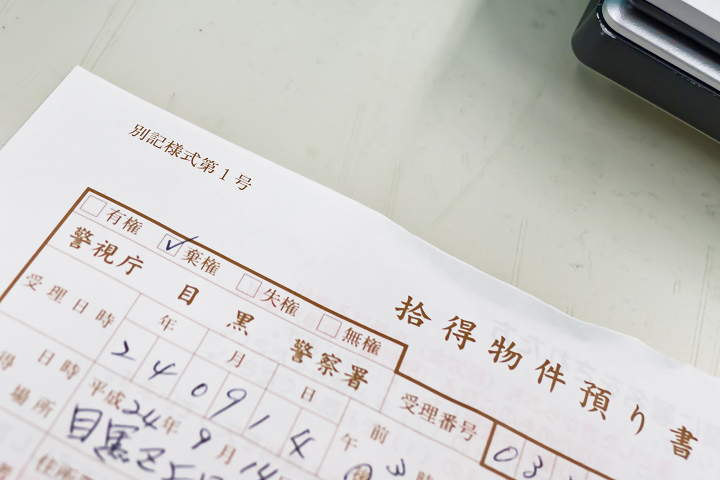 別記様式第1号
拾得物件預り書
□有権 ☑棄権 □失権 □無権
警視庁 目黒 警察署
受理日時 年 月 日 午 前 時 受理番号
2 4 0 9 1 4 後 3 0 3
得 日時 平成24年9月14日
場所 目黒
住所